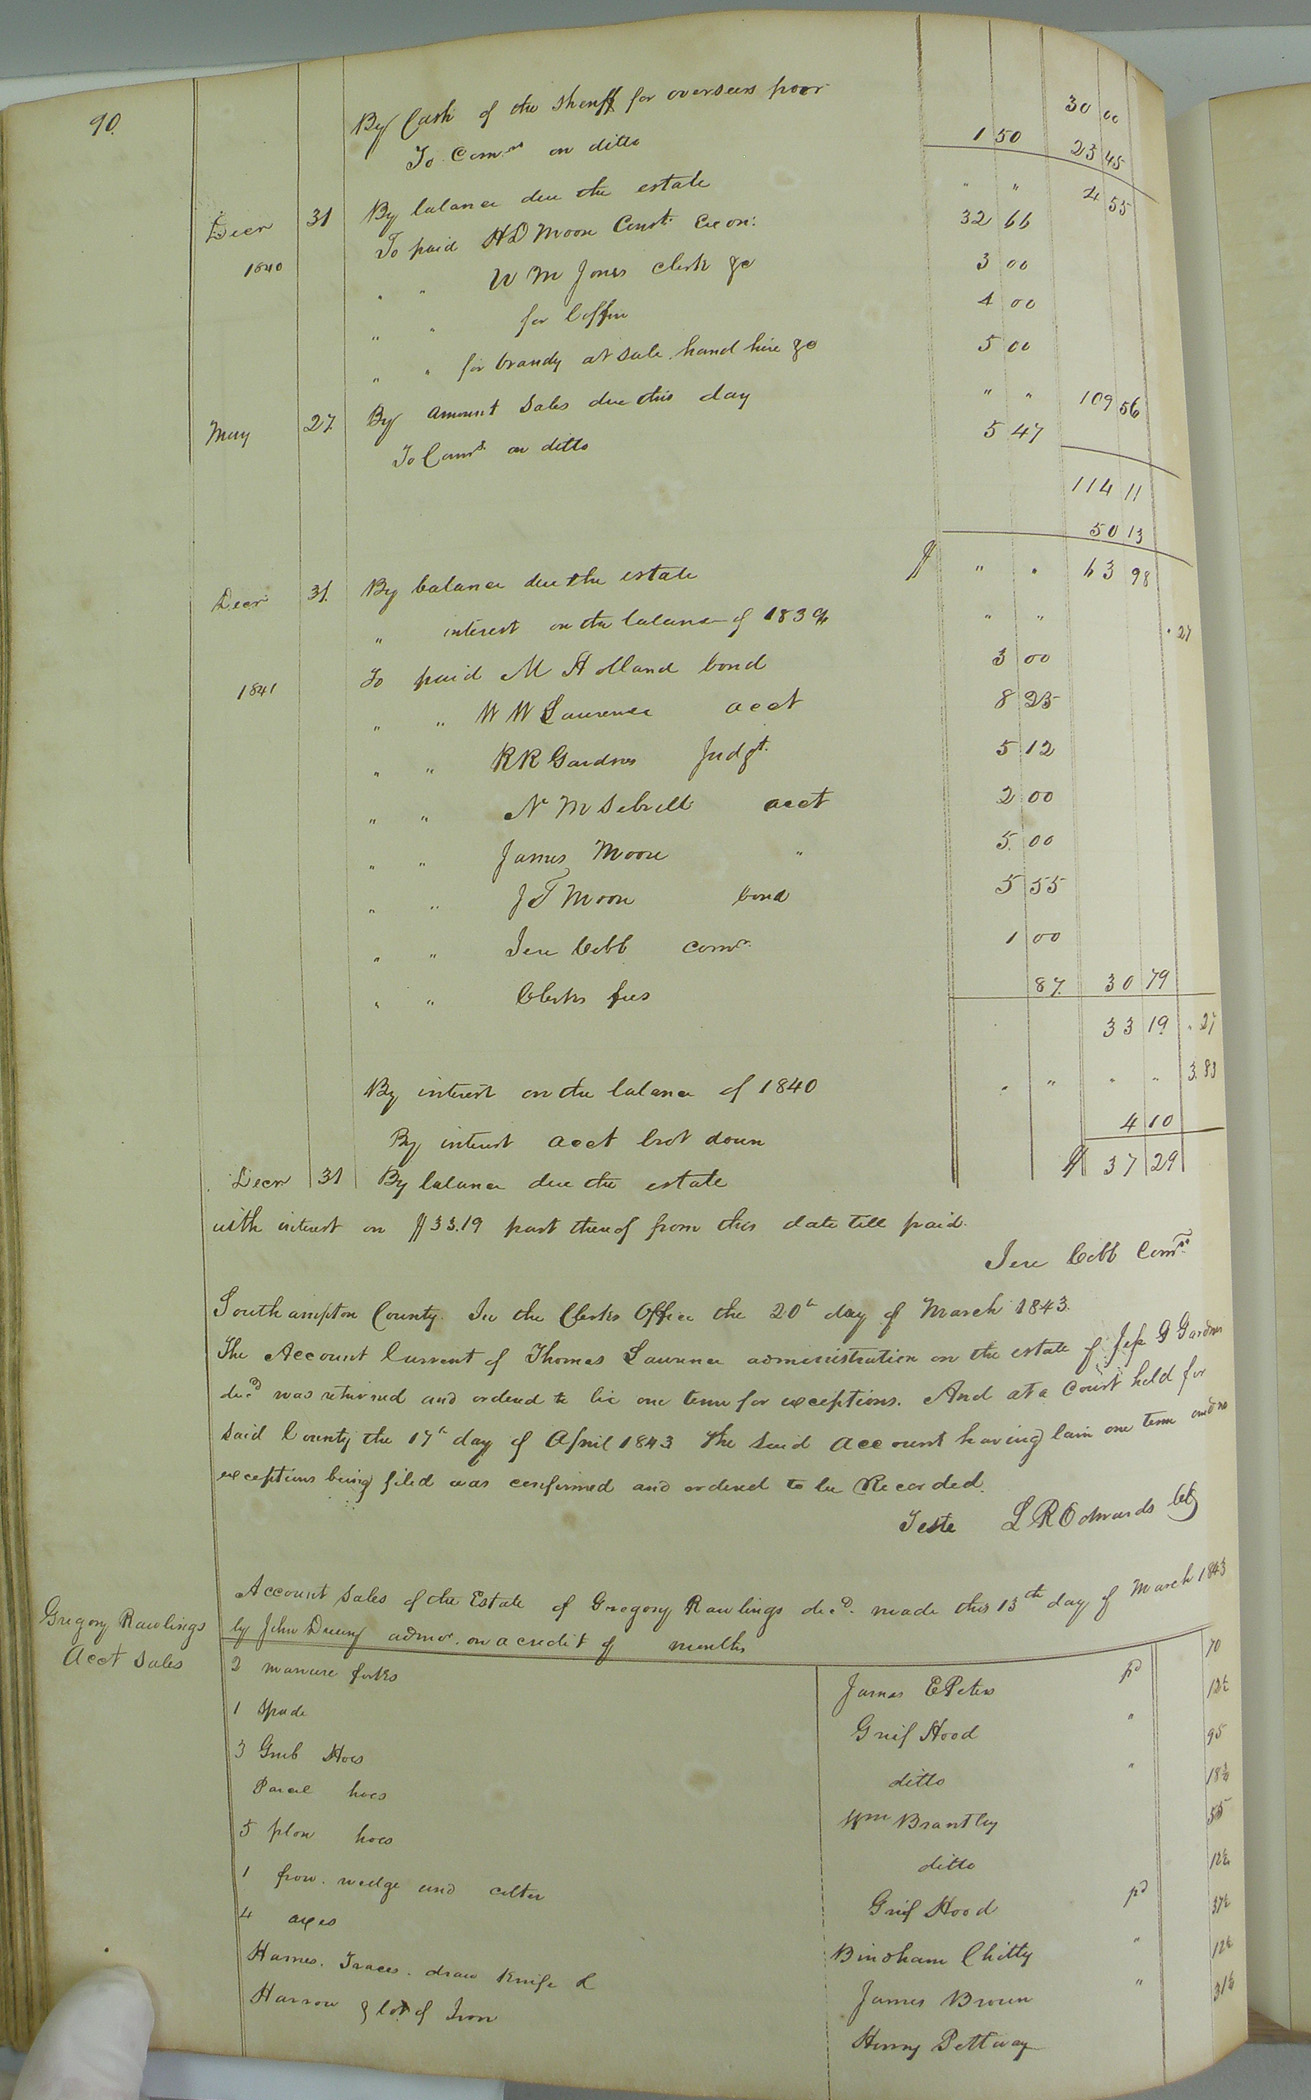 90.
By Cash of the Sheriff for overseers poor 30 00
To Comns on ditto 1 50 25 45
Decr 31 By balance due the estate " " 4 55
1840 To paid H D Moore Const. Exon: 32 66
" " W M Jones Clerk &c 3 00
" " for Coffin 4 00
" " for brandy at sale hand hire &c 5 00
May 27 By amount Sales due this day " " 109 56
To Coms. on ditto 5 47
114 11
50 13
Decr 31. By balance due the estate $ " " 63 98
" interest on the balance of 1839 " " .27
1841 To paid M Holland bond 3 00
" " W W Laurence acct 8 25
" " R R Gardner Judgt. 5 12
" " N M Sebrell acct 2 00
" " James Moore " 5.00
" " J T Moore bond 5 55
" " Jere Cobb comr. 1 00
" " Clerks fees 87. 30 79
33 19 .27
By interest on the balance of 1840 " " " " 3.83
By interest acct brot down 4 10
Decr 31 By balance due the estate $ 37 29
with interest on $33.19 part thereof from this date till paid.
Jere Cobb Comr.
Southampton County. In the Clerks Office the 20th day of March 1843.
The Account Current of Thomas Laurence administration on the estate of G Gardner
decd was returned and ordered to lie one term for exceptions. And at a Court held for
said County the 17th day of April 1843 The said account having lain one term and no
exceptions being filed was confirmed and ordered to be Recorded.
Teste L R Edwards Clk
Gregory Rawlings
Acct Sales
Account Sales of the Estate of Gregory Rawlings decd. made this 13th day of March 1843
by John Drewry admor. on a credit of months
2 manure forks James E Peters pd 70
1 Spade Grief Hood " 12½
3 Grub Hoes ditto " 95
Parcel hoes Wm Brantley 18¾
5 plow hoes ditto 55
1 frow. wedge and colter Grief Hood pd 12½
4 axes Bindham Chitty " 37½
Hames. Traces. draw Knife & James Brown " 12½
Harrow & lot of Iron Henry Pettway 31¼